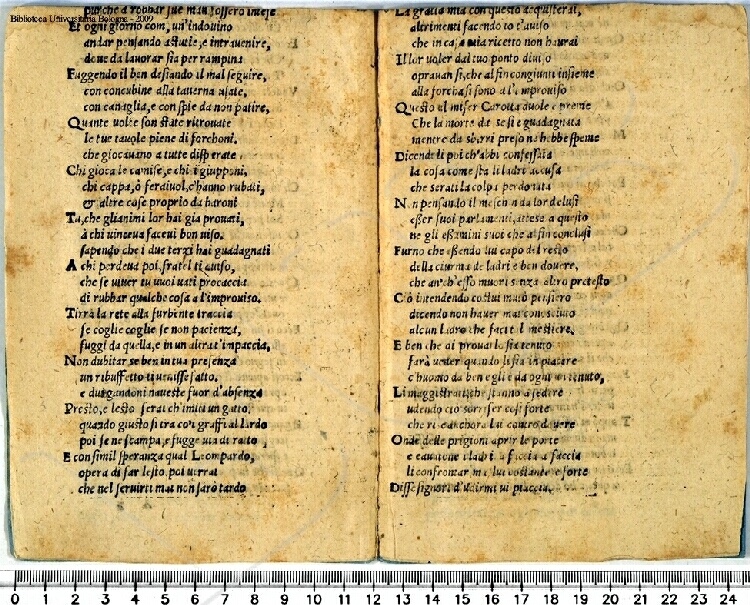 Biblioteca Universitaria Bologna - 2009
pur che a robbar sue man fossero intese
Et ogni giorno com, un'indouino
andar pensando astutie, e intrauenire,
doue da lauorar sia per rampina
Fuggendo il ben desiando il mal seguire,
con concubine alla tauerna usate,
con canaglia, e con spie da non patire,
Quante uolte son state ritrouate
le tue tauole piene di forchoni,
che giocauano a tutte disperate
Chi gioca le camise, e chi i giupponi,
chi cappa, ò feraiuol, c'hanno rubati,
& altre cose proprio da baroni
Tu, che gli animi lor hai gia prouati,
à chi uinceua faceui bon uiso,
sapendo che i due terzi hai guadagnati
A chi perdeua poi, fratel ti auiso,
che se uiuer tu uuoi uati procaccia
di rubbar qualche cosa a l'improuiso.
Tirrà la rete alla furbinte traccia
se coglie coglie se non pacienza,
fuggi da quella, e in un altra t'impaccia,
Non dubitar se ben in tua presenza
un ribuffetto ti uenisse fatto,
e durgandoni naueste fuor d'absenza
Presto, e lesto serai ch'imiti un gatto,
quando giusto si tra con graffi al lardo
poi se ne scampa, e fugge uia di ratto
E con simil speranza qual Leompardo,
opera di far lesto, poi uerrai
che nel seruirti mai non sarò tardo
La gratia mia con questo acquisterai,
altrimenti facendo io t'auiso
che in casa mia ricetto non haurai
Il lor uoler dal tuo ponto diuiso
oprauan si, che al fin congiunti insiente
alla forcha si sono a l'improuiso
Questo al miser Carotta duole e preme
Che la morte da se si è guadagnata
mentre da sbirri preso n'hebbe speme
Dicendoli poi ch'abbi confessata
la cosa come sta li ladri accusa
che serati la colpa perdonata
Non pensando il meschin da lor delusi
esser suoi parlamenti, attese a questo
ne gli essamini suoi che al fin conclusi
Furno che essendo lui capo del resto
della ciurma de ladri e ben douere,
che anch'esso muori senza altro pretesto
Ciò intendendo costui mutò pensiero
dicendo non hauer mai conosciuto
alcun ladro che facci il mestiere,
E ben che ai prouarlo sia tenuto
farà ueder quando li sia in piacere
c'huomo da ben egli è da ogni un tenuto,
Li maggistrati, che stanno à sedere
udendo cio sorriser così forte
che ridea anchora lui contro douere
Onde delle prigioni aprir le porte
e cauatone i ladri a faccia a faccia
li confrontar ma lui costante e forte
Disse signori d'udirmi ui piaccia,
0 1 2 3 4 5 6 7 8 9 10 11 12 13 14 15 16 17 18 19 20 21 22 23 24